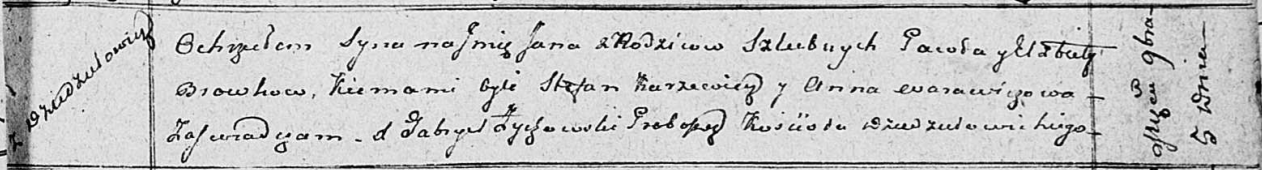 z Dziedziłowicz
Ochrzciłem Syna na Jmię Jana z Rodzicow Szlubnych Pawła y Elżbiety
Browkow, Kumami byli Stefan Karzewicz y Anna
Zaświadczam. X Gabryel Zychowski Proboszcz Kościoła Dziedziłowickiego
9bra
5 Dnia